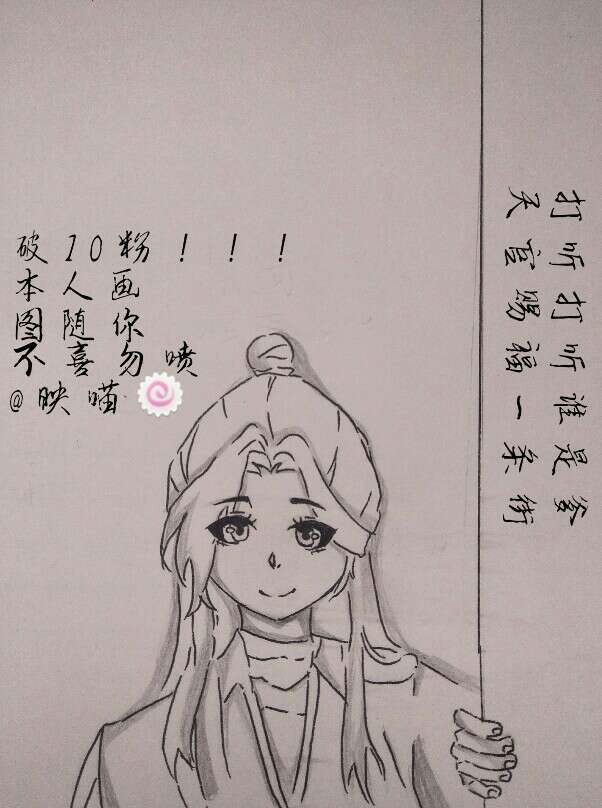 破10粉！！！
本人画
图随你
不喜勿喷
@映喵🍥
打听打听谁是爹
天官赐福一条街